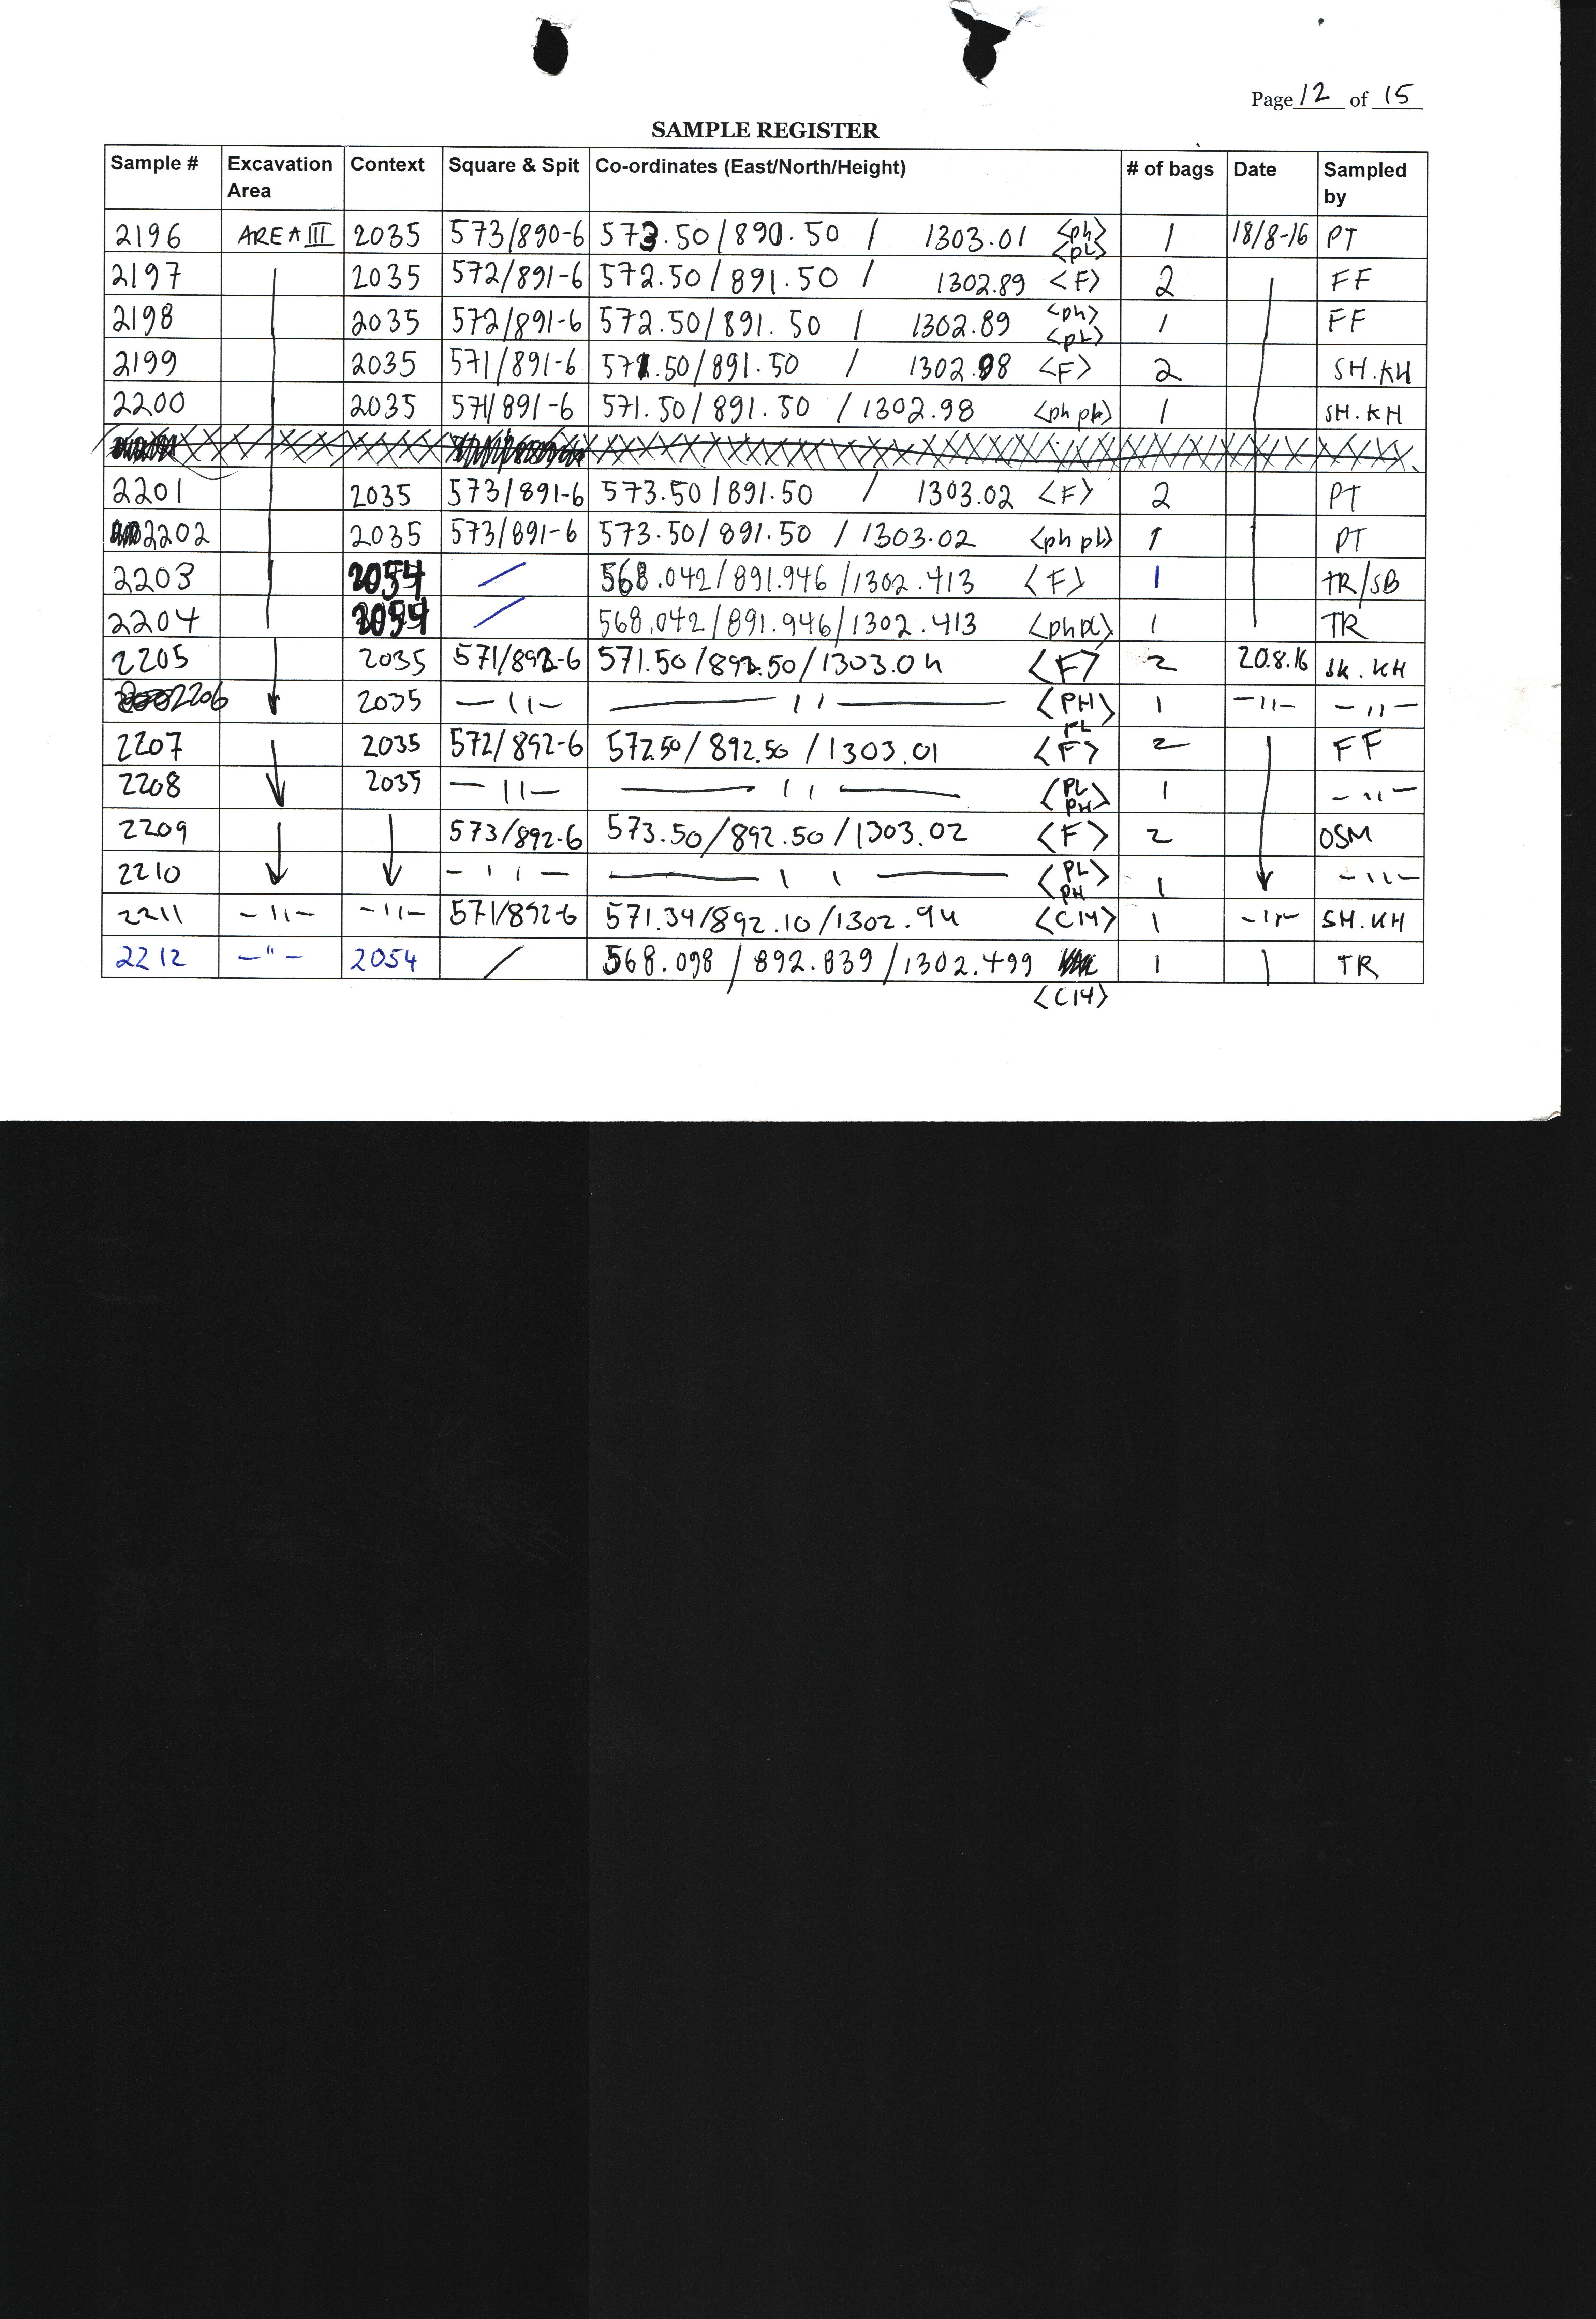 Page 12 of 15
SAMPLE REGISTER
Sample # Excavation Area Context Square & Spit Co-ordinates (East/North/Height) # of bags Date Sampled by
2196 AREA III 2035 573/890-6 573.50/890.50 / 1303.01 <ph> <pL> 1 18/8-16 PT
2197 2035 572/891-6 572.50/891.50 / 1302.89 <F> 2 FF
2198 2035 572/891-6 572.50/891.50 / 1302.89 <ph> <pL> 1 FF
2199 2035 571/891-6 571.50/891.50 / 1302.98 <F> 2 SH.KH
2200 2035 571/891-6 571.50/891.50 / 1302.98 <ph pL> 1 SH.KH
2201 2035 573/891-6 573.50/891.50 / 1303.02 <F> 2 PT
2202 2035 573/891-6 573.50/891.50 / 1303.02 <ph pL> 1 PT
2203 2054 / 568.042/891.946/1302.413 <F> 1 TR/SB
2204 2054 / 568.042/891.946/1302.413 <ph pL> 1 TR
2205 2035 571/892-6 571.50/892.50/1303.04 <F> 2 20.8.16 SH.KH
2206 2035 -11- - 11 - <PH PL> 1 -11- -11-
2207 2035 572/892-6 572.50/892.50/1303.01 <F> 2 FF
2208 2035 -11- - 11 - <PL PH> 1 -11-
2209 573/892-6 573.50/892.50/1303.02 <F> 2 OSM
2210 -11- - 11 - <PL PH> 1 -11-
2211 -11- -11- 571/892-6 571.34/892.10/1302.94 <C14> 1 -11- SH.KH
2212 -"- 2054 / 568.098/892.839/1302.499 1 TR
<C14>